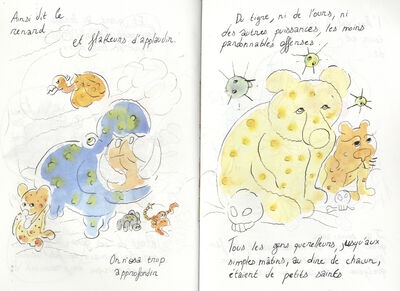 Ainsi dit le
renard
et flatteurs d'applaudir.
On n'osa trop
approfondir
Du tigre, ni de l'ours, ni
des autres puissances, les moins
pardonnables offenses.
Tous les gens querelleurs, jusqu'aux
simples mâtins, au dire de chacun,
étaient de petits saints